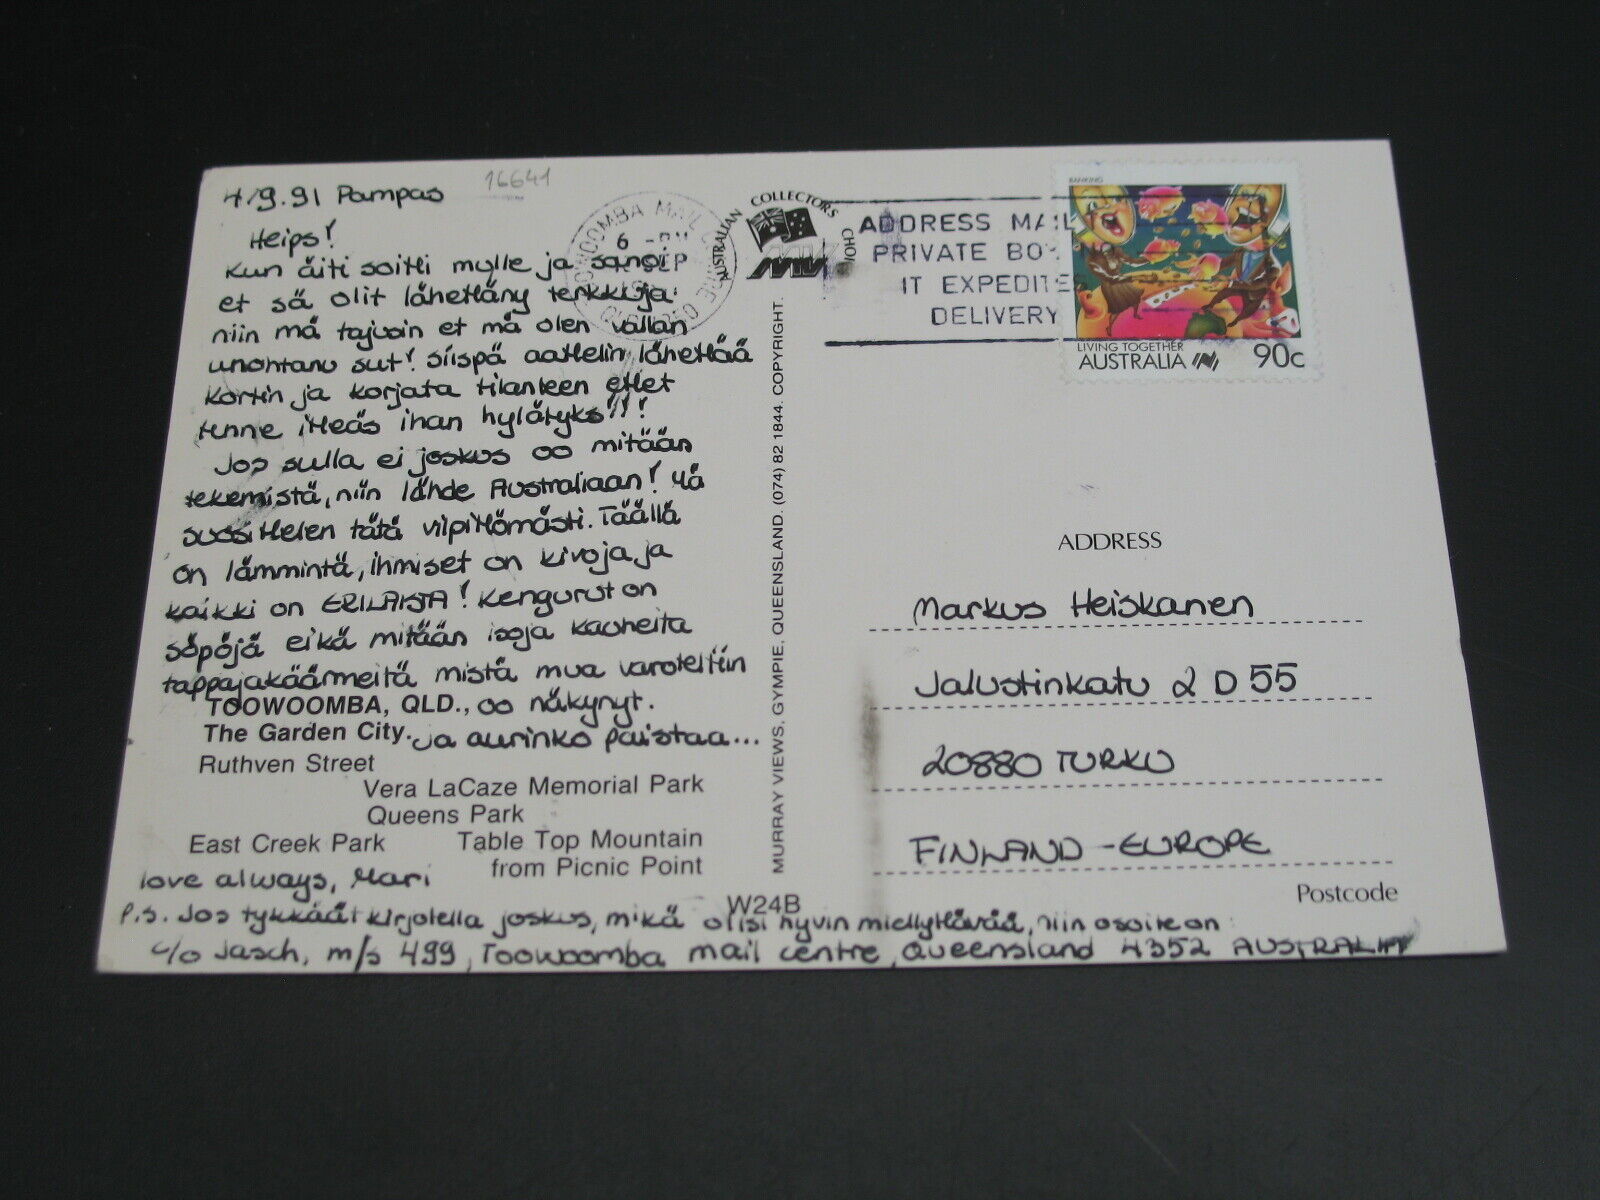 4/9.91 Pampas
16641
Heips!
Kun äiti soitti mulle ja sanoi
et sä olit lähettäny terkkuja
niin mä tajusin et mä olen vallan
unohtanu sut! Siispä aattelin lähettää
kortin ja korjata tilanteen ettet
tunne itteäs ihan hylätyks!!!
Jos sulla ei joskus oo mitään
tekemistä, niin lähde Australiaan! Mä
suosittelen tätä vilpittömästi. Täällä
on lämmintä, ihmiset on kivoja ja
kaikki on ERILAISTA! Kengurut on
söpöjä eikä mitään isoja kauheita
tappajakäärmeitä mistä mua varoteltiin
TOOWOOMBA, QLD., oo näkynyt.
The Garden City. ja aurinko paistaa...
Ruthven Street
Vera LaCaze Memorial Park
Queens Park
East Creek Park Table Top Mountain
from Picnic Point
love always, Mari
W24B
P.S. Jos tykkäät kirjotella joskus, mikä olisi hyvin miellyttävää, niin osoite on:
c/o Jasch, m/s 499, Toowoomba mail centre, Queensland 4352 AUSTRALIA
MURRAY VIEWS, GYMPIE, QUEENSLAND. (074) 82 1844. COPYRIGHT.
TOOWOOMBA MAIL CENTRE
6 -PM
SEP
AUSTRALIAN COLLECTORS
ADDRESS MAIL
PRIVATE BO
IT EXPEDITES
DELIVERY
BANKING
LIVING TOGETHER
AUSTRALIA 90c
ADDRESS
Markus Heiskanen
Jalustinkatu 2 D 55
20880 TURKU
FINLAND - EUROPE
Postcode